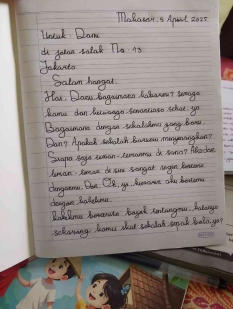 Makasar, 5 April 2025
Untuk : Danu
di jalan salak No. 13
Jakarta
Salam hangat.
Hai Danu bagaimana kabarmu? semoga
kamu dan keluarga senantiasa sehat ya
Bagaimana dengan sekolahmu yang baru.
Dan? Apakah sekolah barumu menyenangkan?
Siapa saja teman-temanmu di sana? Aku dan
teman-teman di sini sangat ingin bertemu
denganmu. Dan Oh, ya, kemarin aku bertemu
dengan kakekmu.
kakekmu bercerita banyak tentangmu. katanya
sekarang kamu ikut sekolah sepak bola, ya?